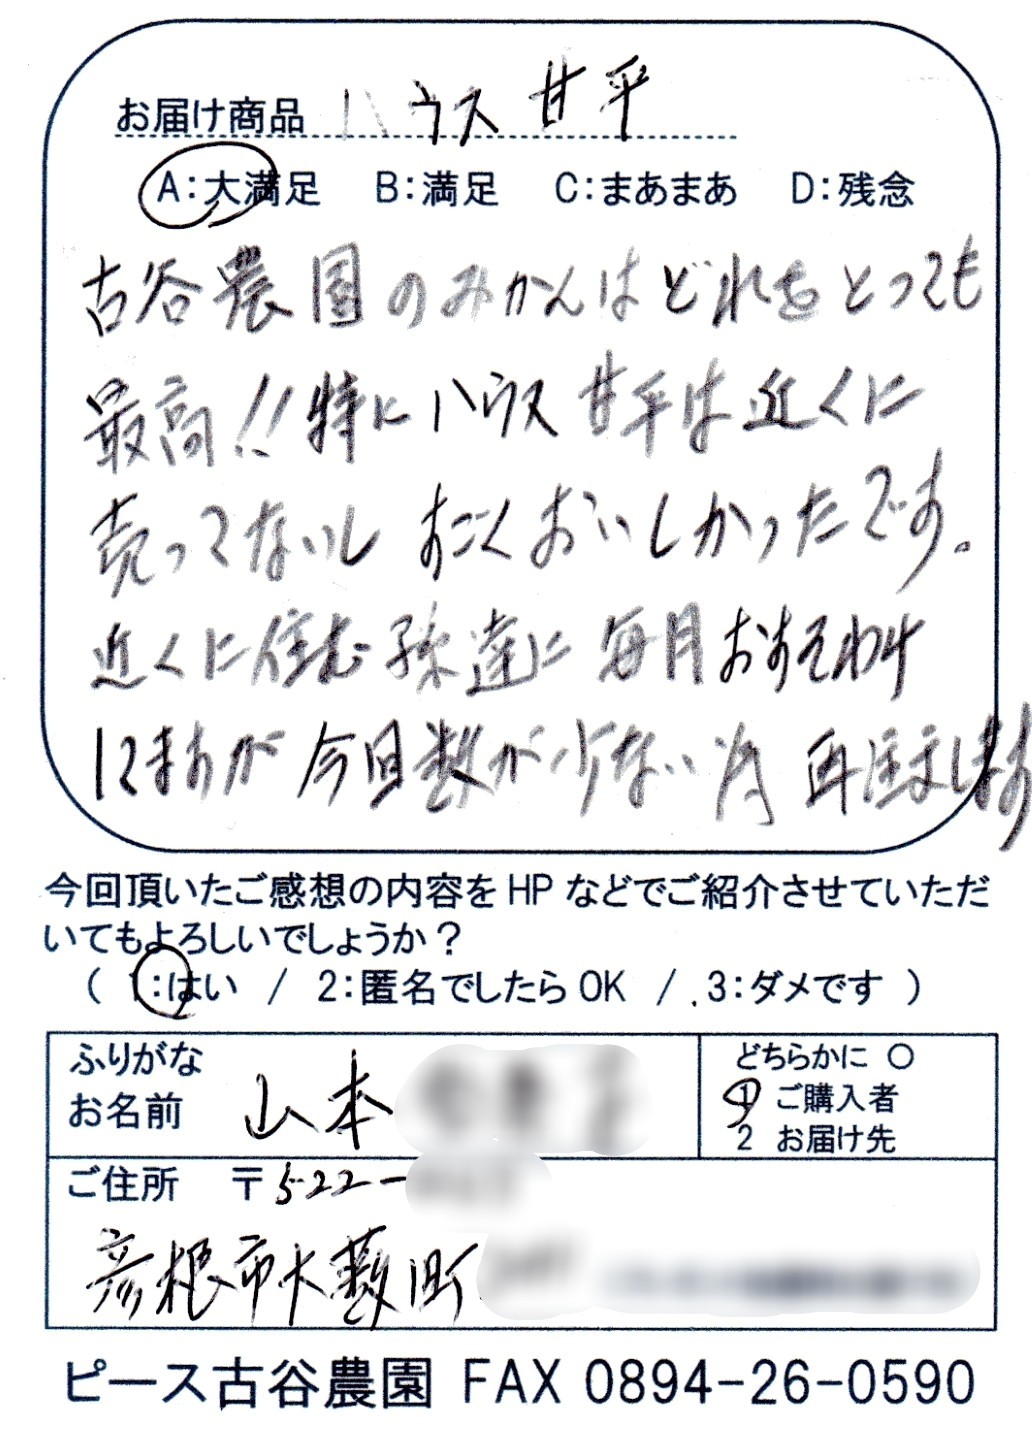 お届け商品 ハウス甘平
A:大満足 B:満足 C:まあまあ D:残念
古谷農園のみかんはどれをとっても
最高!!特にハウス甘平は近くに
売ってないしすごくおいしかったです。
近くに住む孫達に毎月おすそわけ
してますが今回数が少ない為再注文します
今回頂いたご感想の内容をHPなどでご紹介させていただ
いてもよろしいでしょうか？
( 1:はい / 2:匿名でしたらOK / 3:ダメです )
ふりがな
お名前 山本
どちらかに ○
1 ご購入者
2 お届け先
ご住所 〒522-
彦根市大薮町
ピース古谷農園 FAX 0894-26-0590